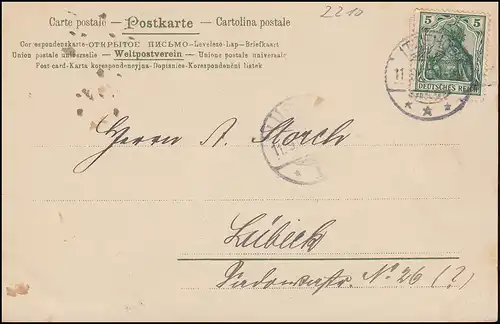 2210
Carte postale — Postkarte — Cartolina postale
Correspondenzkarte-ОТКРЫТОЕ ПИСЬМО-Levelező-Lap-Briefkaart
Union postale universelle — Weltpostverein — Unione postale universale
Post card-Karta korespondencyjna-Dopisnice-Korespondenční lístek
5 5
DEUTSCHES REICH
11.
11.
Herrn A. Storch
Lübeck
No 26 (?)